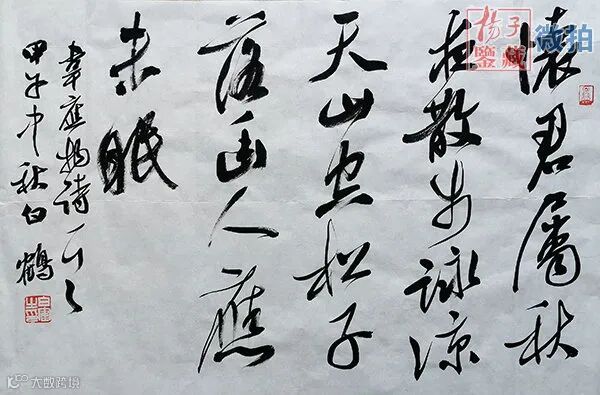 揚子
鑒藏
微拍
懷君屬秋
夜散步詠涼
天山空松子
落幽人應
未眠
韋應物詩
甲午中秋白鶴
大数跨境